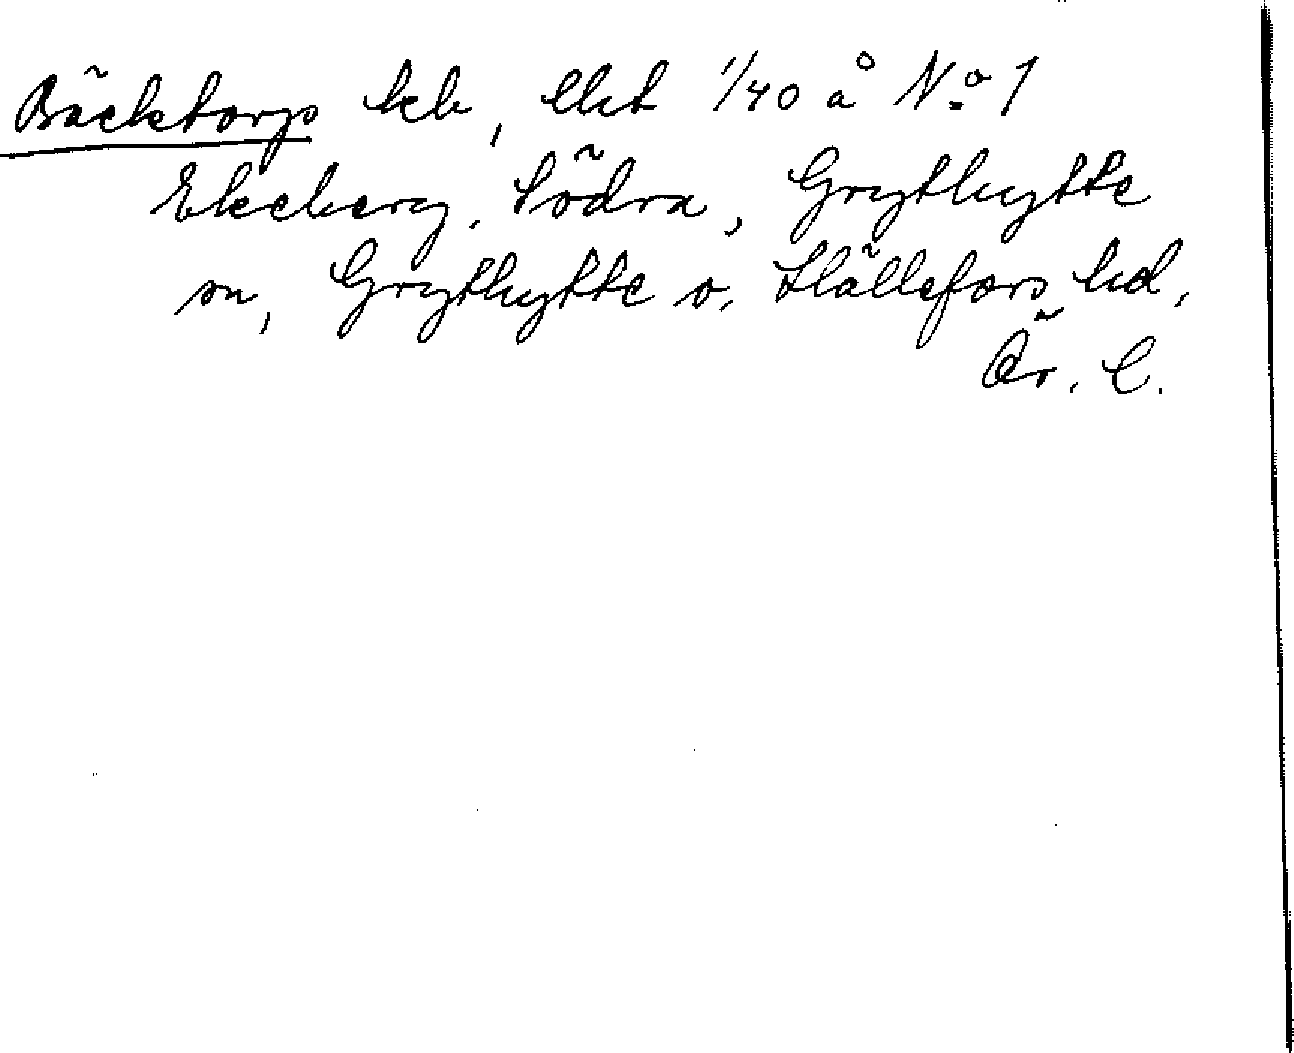 Bäcktorps hd, lht 1/40 å No 1
Ekeberg, Södra, Grythytte
sn, Grythytte o. Hällefors hd,
Ör. l.